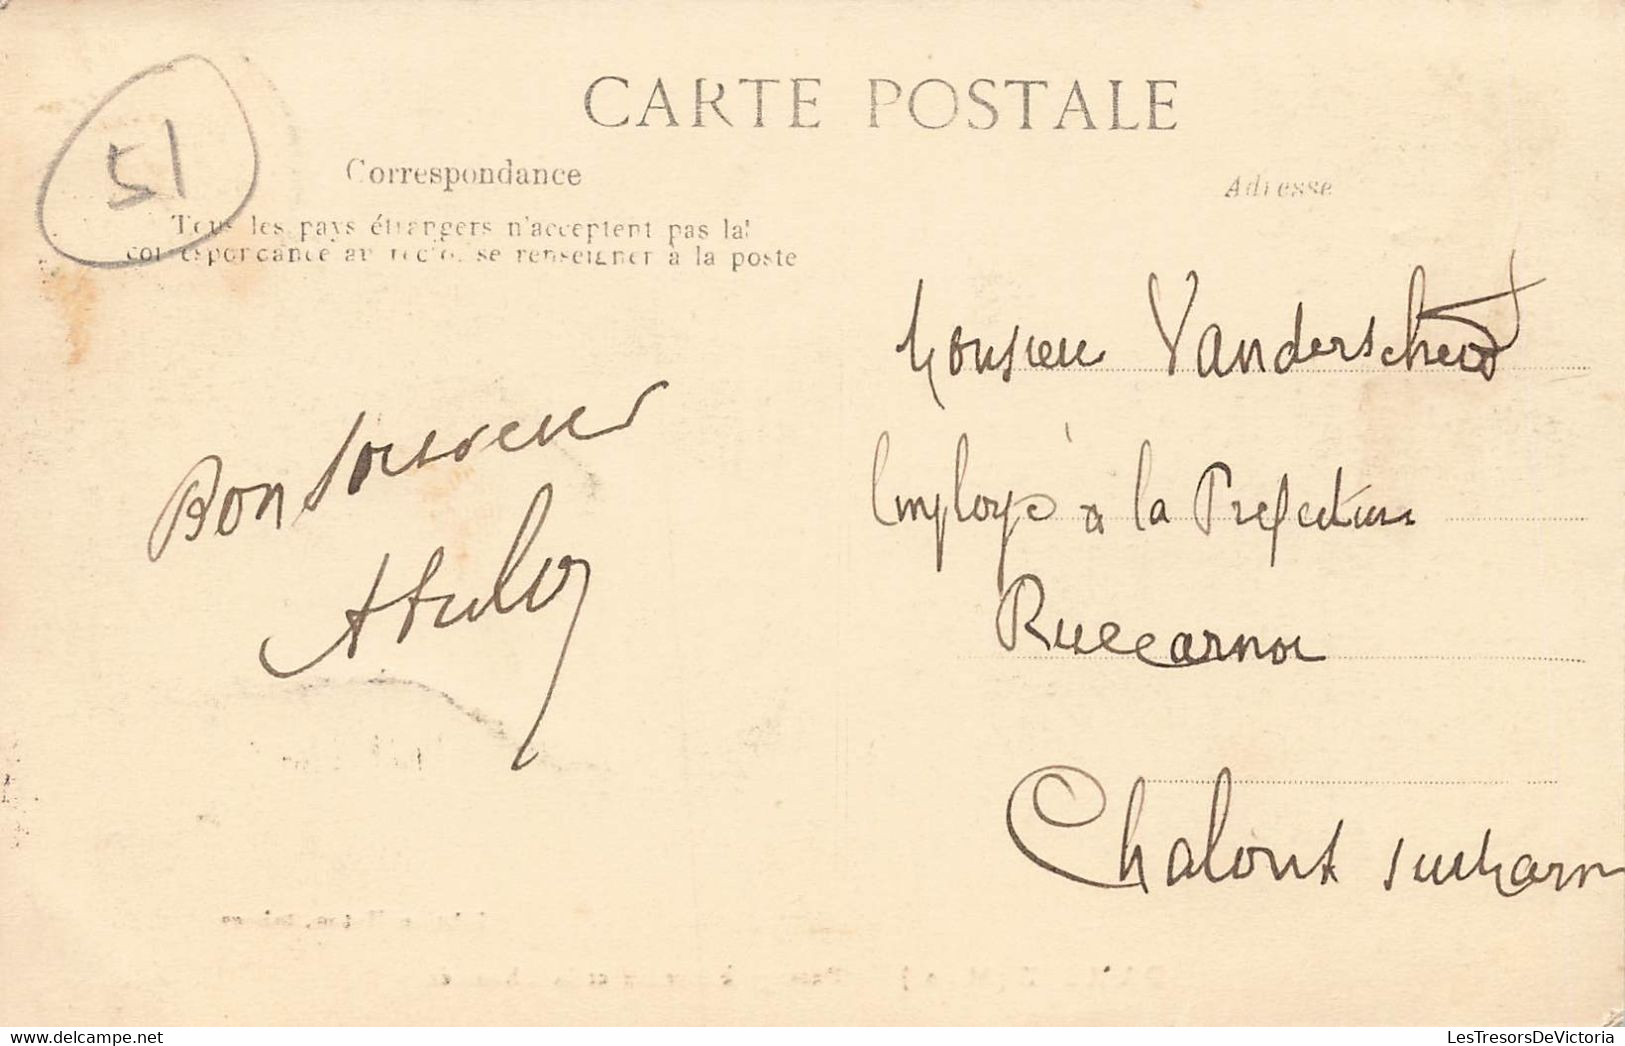 CARTE POSTALE
51
Correspondance
Adresse
Tous les pays étrangers n'acceptent pas la
correspondance au recto. se renseigner à la poste
Monsieur Vanderscheid
Employé à la Prefecture
Rue Carnot
Chalons sur Marn
Bon Souvenir
LesTresorsDeVictoria
delcampe.net